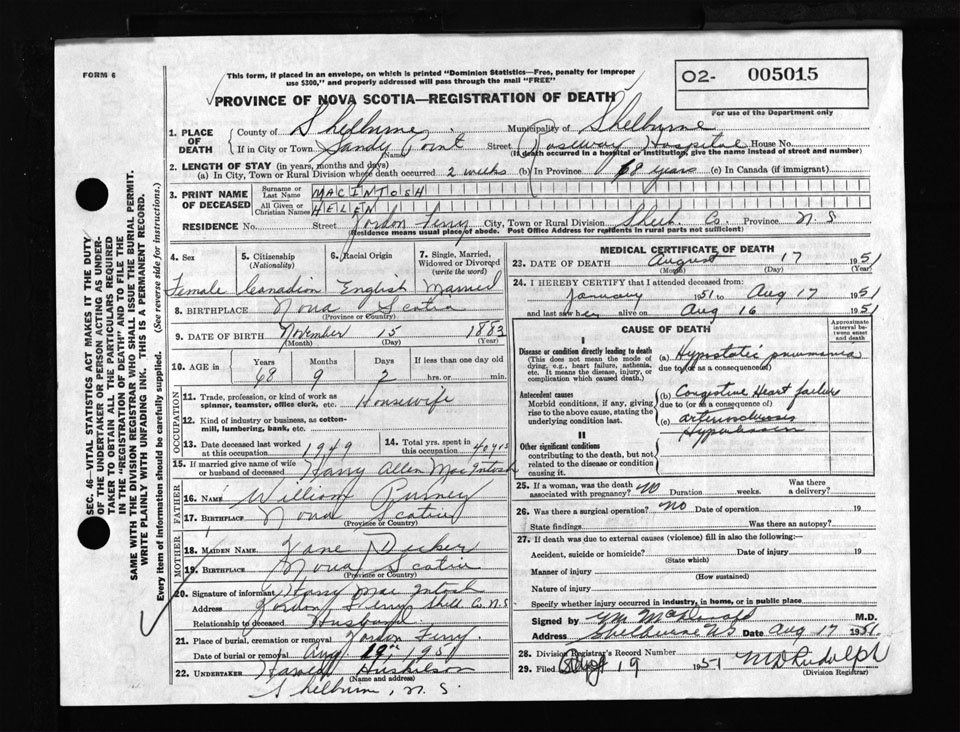 FORM 6
This form, if placed in an envelope, on which is printed "Dominion Statistics—Free, penalty for improper
use $300," and properly addressed will pass through the mail "FREE"
O2- 005015
PROVINCE OF NOVA SCOTIA—REGISTRATION OF DEATH
For use of the Department only
1. PLACE OF DEATH
County of Shelburne Municipality of Shelburne
If in City or Town Sandy Point Street Roseway Hospital House No.
(Name) (If death occurred in a hospital or institution, give the name instead of street and number)
2. LENGTH OF STAY (in years, months and days)
(a) In City, Town or Rural Division where death occurred 2 weeks (b) In Province 68 years (c) In Canada (if immigrant)
3. PRINT NAME OF DECEASED
Surname or Last Name MACINTOSH
All Given or Christian Names HELEN
RESIDENCE No. Street Jordon Ferry City, Town or Rural Division Shelb. Co. Province N.S
(Residence means usual place of abode. Post Office Address for residents in rural parts not sufficient)
4. Sex
5. Citizenship (Nationality)
6. Racial Origin
7. Single, Married, Widowed or Divorced (write the word)
Female Canadian English Married
8. BIRTHPLACE Nova Scotia
(Province or Country)
9. DATE OF BIRTH November 15 1883
(Month) (Day) (Year)
10. AGE in Years Months Days If less than one day old
68 9 2 hrs. or min.
OCCUPATION
11. Trade, profession, or kind of work as spinner, teamster, office clerk, etc. Housewife
12. Kind of industry or business, as cotton-mill, lumbering, bank, etc.
13. Date deceased last worked at this occupation 1949
14. Total yrs. spent in this occupation 40 yrs
15. If married give name of wife or husband of deceased Harry Allen MacIntosh
FATHER
16. NAME William Purney
17. BIRTHPLACE Nova Scotia
(Province or Country)
MOTHER
18. MAIDEN NAME Jane Decker
19. BIRTHPLACE Nova Scotia
(Province or Country)
20. Signature of informant Harry MacIntosh
Address Jordon Ferry Shelb. Co. N.S.
Relationship to deceased Husband
21. Place of burial, cremation or removal Jordon Ferry.
Date of burial or removal Aug. 19th, 1951
22. UNDERTAKER Harold
(Name and address)
Shelburne, N.S.
MEDICAL CERTIFICATE OF DEATH
23. DATE OF DEATH August 17 1951
(Month) (Day) (Year)
24. I HEREBY CERTIFY that I attended deceased from:
January 1951 to Aug 17 1951
and last saw her alive on Aug 16 1951
CAUSE OF DEATH
Approximate interval between onset and death
I
Disease or condition directly leading to death
(This does not mean the mode of dying, e.g., heart failure, asthenia, etc. It means the disease, injury, or complication which caused death.)
(a) Hypostatic pneumonia
due to (or as a consequence of)
Antecedent causes
Morbid conditions, if any, giving rise to the above cause, stating the underlying condition last.
(b) Congestive Heart failure
due to (or as a consequence of)
(c) arteriosclerosis
Hypertension
II
Other significant conditions
contributing to the death, but not related to the disease or condition causing it.
25. If a woman, was the death associated with pregnancy? No Duration weeks. Was there a delivery?
26. Was there a surgical operation? No Date of operation 19
State findings Was there an autopsy?
27. If death was due to external causes (violence) fill in also the following:—
Accident, suicide or homicide? Date of injury 19
(State which)
Manner of injury
(How sustained)
Nature of injury
Specify whether injury occurred in industry, in home, or in public place
Signed by M.D.
Address Shelburne NS Date Aug 17 1951
28. Division Registrar's Record Number
29. Filed 19 1951 M D Rudolph
(Division Registrar)
SEC. 46—VITAL STATISTICS ACT MAKES IT THE DUTY
OF THE UNDERTAKER OR PERSON ACTING AS UNDER-
TAKER TO OBTAIN ALL THE PARTICULARS REQUIRED
IN THE "REGISTRATION OF DEATH" AND TO FILE THE
SAME WITH THE DIVISION REGISTRAR WHO SHALL ISSUE THE BURIAL PERMIT.
WRITE PLAINLY WITH UNFADING INK. THIS IS A PERMANENT RECORD.
Every item of information should be carefully supplied. (See reverse side for instructions.)